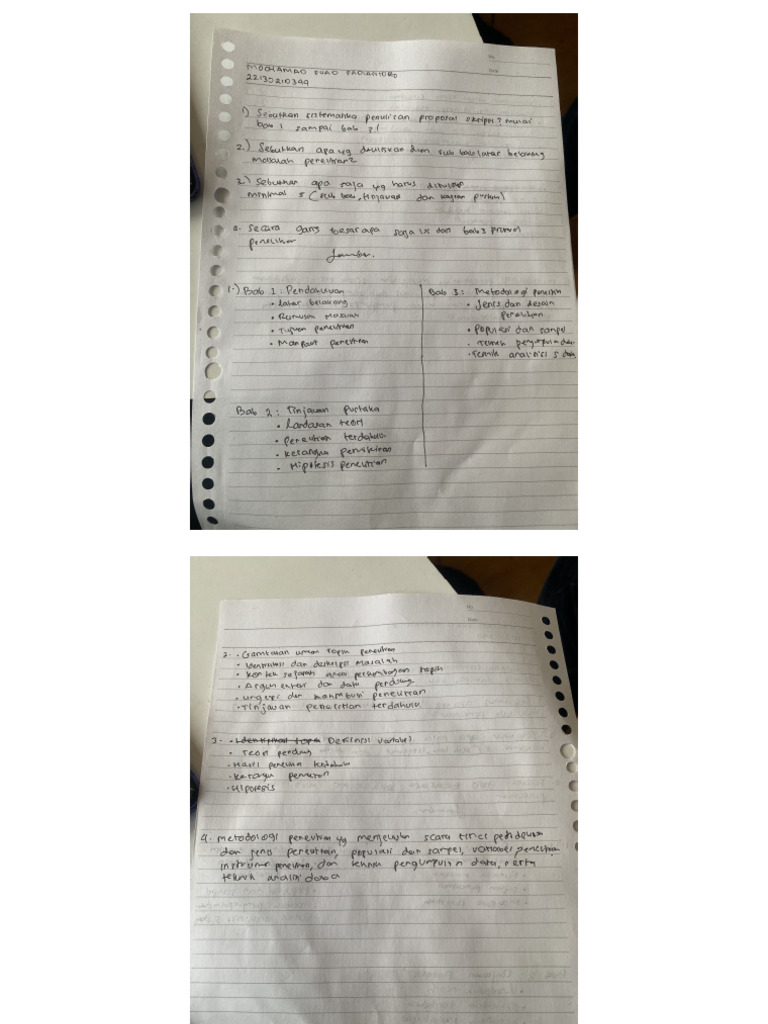 No
Date
MOCHAMAD SUAO SADIANTORO
22130210349
1) Sebutkan sistematika penulisan proposal skripsi? mulai
bab 1 sampai bab 3!
2.) Sebutkan apa yg dituliskan dlm sub bab latar belakang
masalah penelitian?
3.) Sebutkan apa saja yg harus ditulis
minimal 5 (sub bab, tinjauan dan kajian pustaka)
a. Secara garis besar apa saja isi dari bab 3 proposal
penelitian
Jawaban.
1.) Bab 1 : Pendahuluan
• Latar belakang
• Rumusan masalah
• Tujuan penelitian
• Manfaat penelitian
Bab 2 : Tinjauan Pustaka
• Landasan teori
• penelitian terdahulu
• kerangka pemikiran
• Hipotesis penelitian
Bab 3 : Metodologi penelitian
• Jenis dan desain
penelitian
• Populasi dan sampel
• Teknik pengumpulan data
• Teknik analisis data
No
Date
2. • Gambaran umum topik penelitian
• Identifikasi dan deskripsi masalah
• Konteks sejarah atau perkembangan topik
• Argumentasi dan data pendukung
• urgensi dan kontribusi penelitian
• Tinjauan penelitian terdahulu
3 - • Identifikasi topik Definisi variabel
• Teori pendukung
• Hasil penelitian terdahulu
• Kerangka pemikiran
• Hipotesis
4. metodologi penelitian yg menjelaskan secara rinci pendekatan
dan jenis penelitian, populasi dan sampel, variabel penelitian
instrumen penelitian, dan teknik pengumpulan data, serta
teknik analisis data